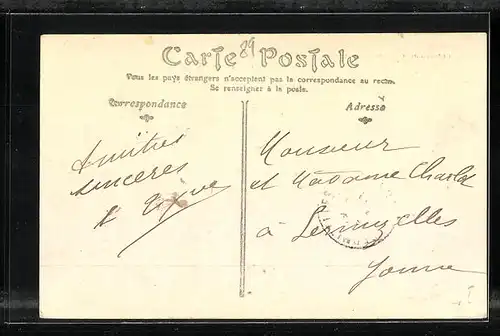 29
Carte Postale
Tous les pays étrangers n'acceptent pas la correspondance au recto.
Se renseigner à la poste.
Correspondance
Adresse
Amitiés
sincères
Monsieur
et Madame Charlot
à Sermizelles
Yonne